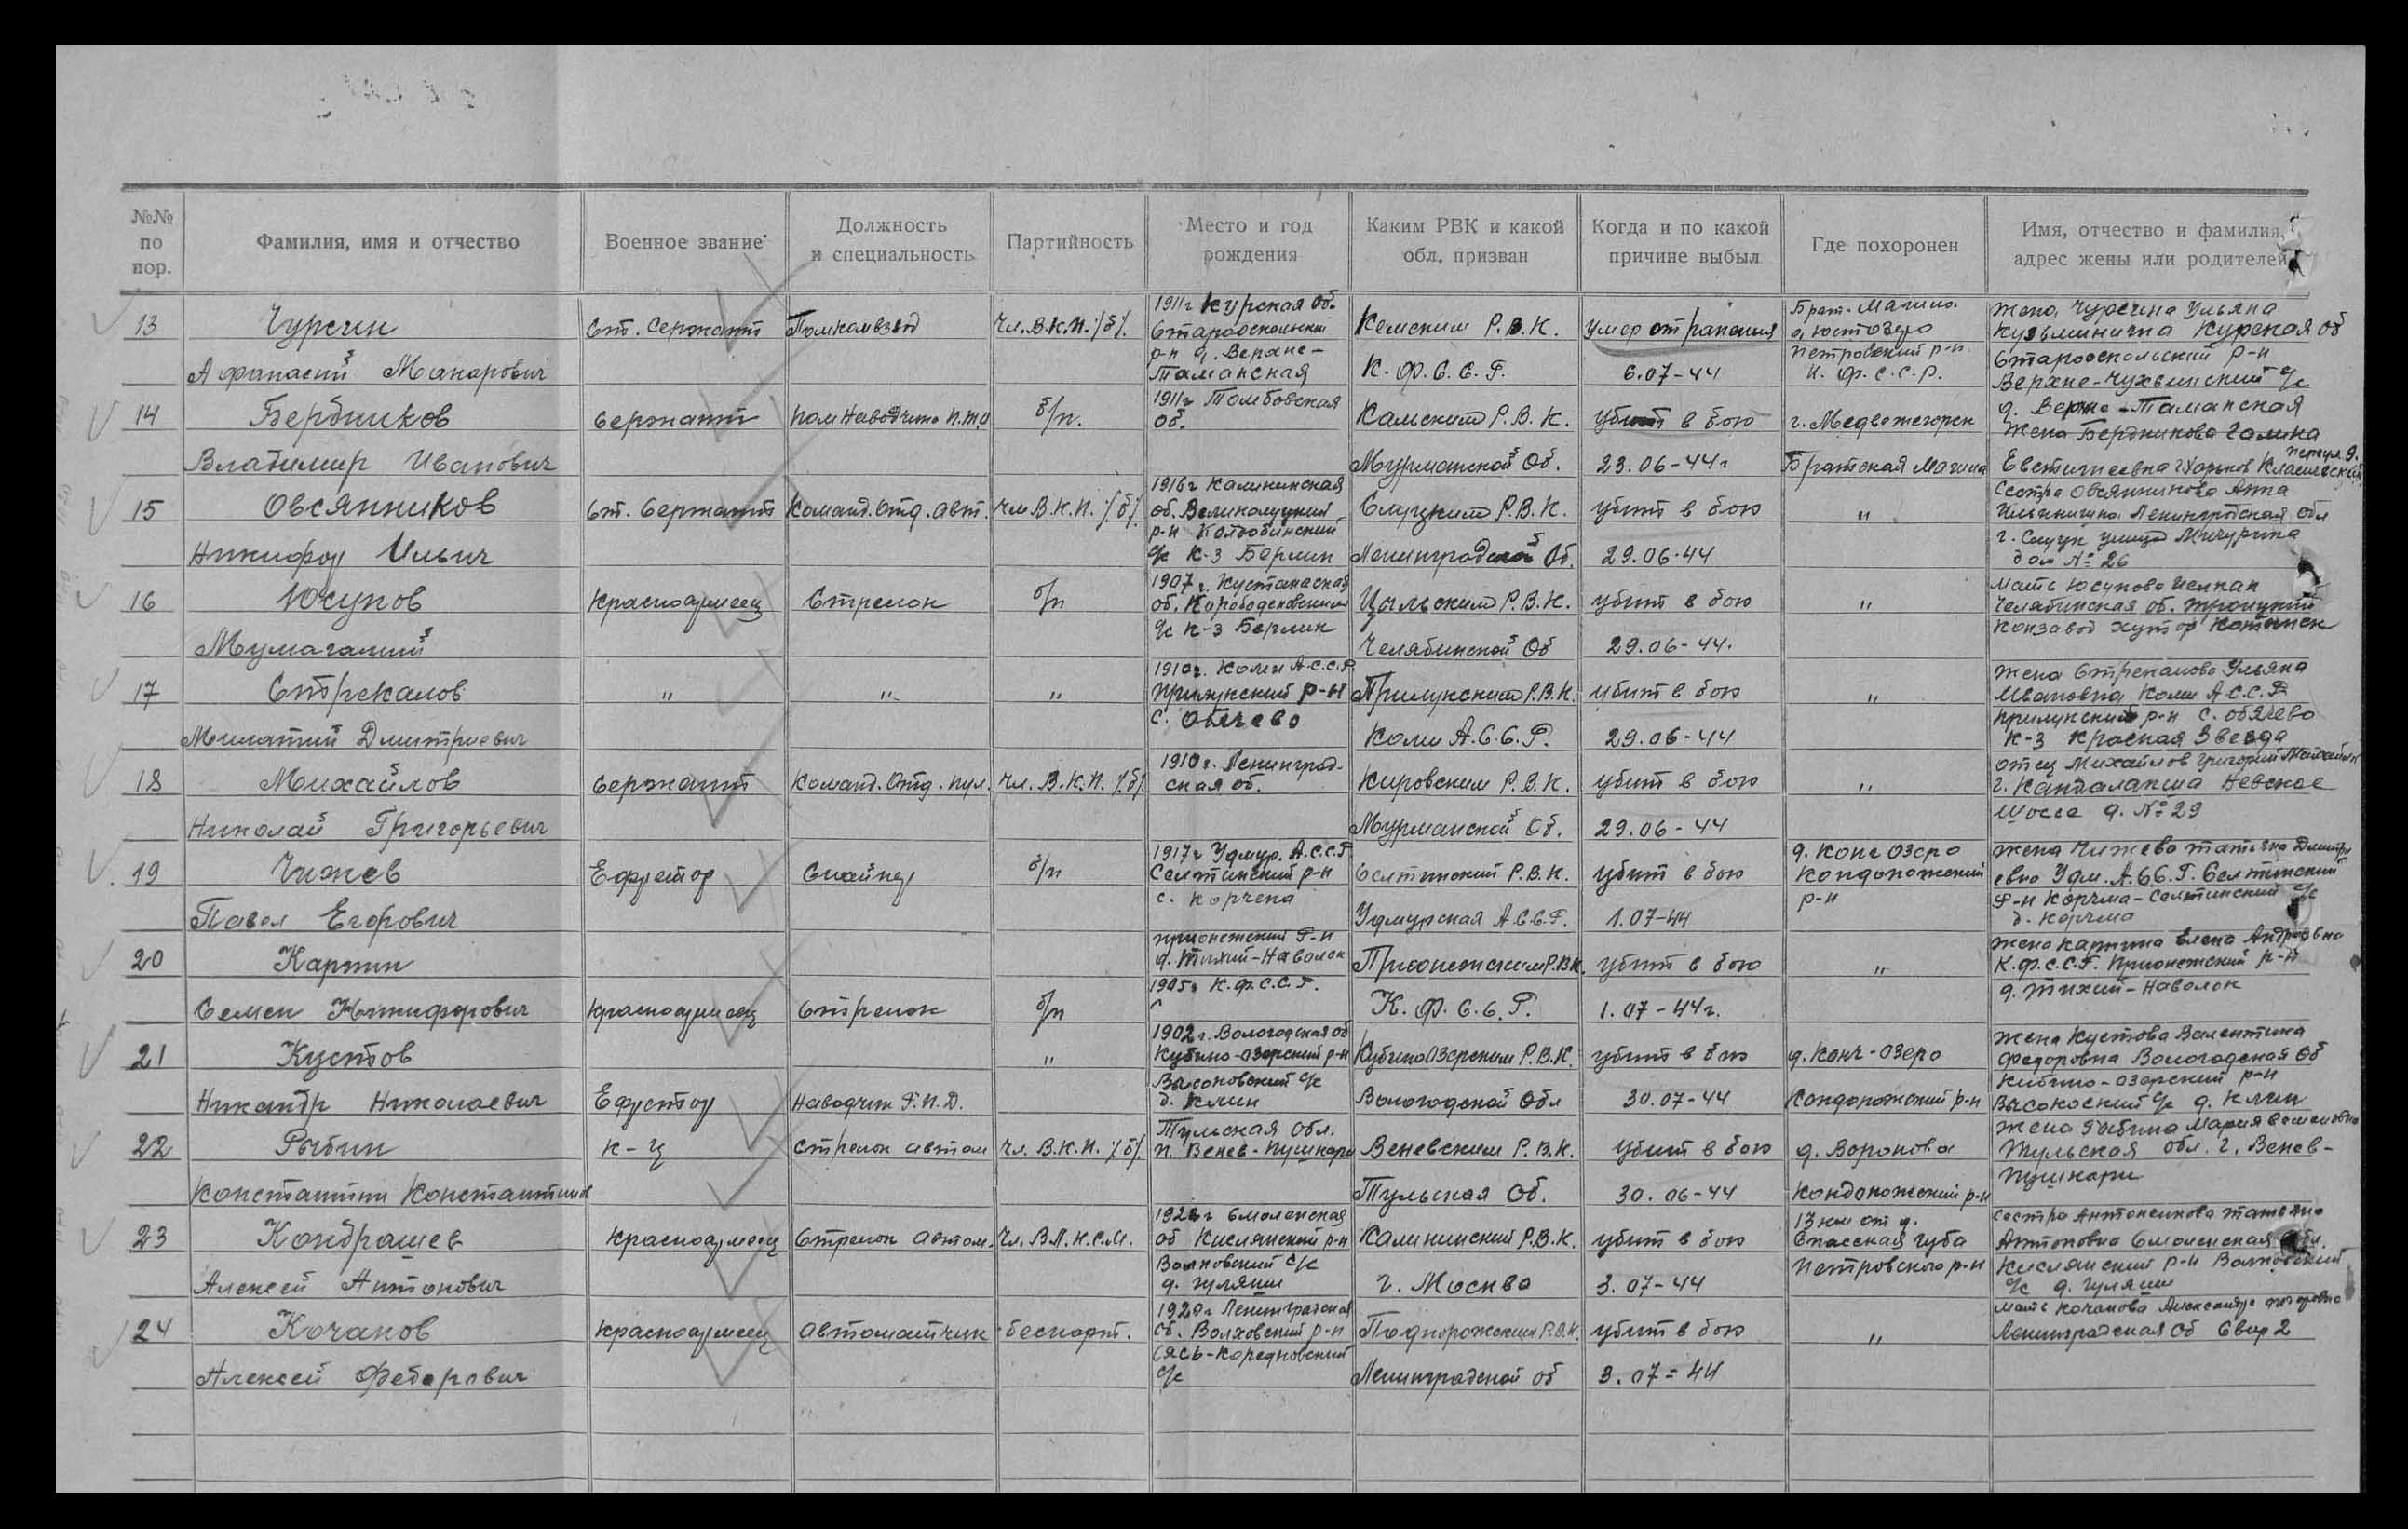 №№ по пор.
Фамилия, имя и отчество
Военное звание
Должность и специальность
Партийность
Место и год рождения
Каким РВК и какой обл. призван
Когда и по какой причине выбыл
Где похоронен
Имя, отчество и фамилия, адрес жены или родителей
13
Чурсин
Афанасий Макарович
Ст. Сержант
Помкомвзвод
Чл. В.К.П. /б/.
1911г Курская Об.
Старооскольский
р-н д. Верхне-
Таманская
Кемским Р.В.К.
К.Ф.С.С.Р.
Умер от ранения
6.07-44
Брат. Могила
Петровский р-н
К.Ф.С.С.Р.
Жена Чурсина Ульяна
Кузьминична Курская Об
Старооскольский р-н
Верхне-Чухвинский с/с
д. Верхне-Таманская
14
Бердников
Владимир Иванович
Сержант
Пом Наводчика П.Т.О
б/п.
1911г Томбовская
Об.
Камским Р.В.К.
Мурманской Об.
Убит в бою
23.06-44г
г. Медвежегорск
Братская Могила
Жена Бердникова Галина
Евстигнеевна г Харьков
15
Овсянников
Никифор Ильич
Ст. Сержант
Команд. Отд. Авт.
Чл В.К.П. /б/.
1916г Калининская
об. Великолукский
р-н
с/с к-з Берлин
Слуцким Р.В.К.
Ленинградской Об.
убит в бою
29.06-44
"
Сестра Овсянникова Анна
Ильинична Ленинградская Обл
г. Слуцк улица Мичурина
дом № 26
16
Юсупов
Мумагалий
Красноармеец
Стрелок
б/п
1907г. Кустанаская
об.
с/с к-з Берлин
Челябинской Об
убит в бою
29.06-44.
"
Мать Юсупова
Челябинская об. Троицкий
Конзавод хутор
17
Стрекалов
Милатий Дмитриевич
"
"
"
1910г. Коми А.С.С.Р.
Прилукский р-н
с. Обячево
Прилукским Р.В.К.
Коми А.С.С.Р.
убит в бою
29.06-44
"
Жена Стрекалова Ульяна
Ивановна Коми А.С.С.Р
Прилукский р-н с. Обячево
к-з Красная Звезда
18
Михайлов
Николай Григорьевич
Сержант
Команд. Отд. пул.
Чл. В.К.П. /б/
1910г. Ленинград-
ская об.
Кировским Р.В.К.
Мурманской Об.
убит в бою
29.06-44
"
Отец Михайлов Григорий
г. Кандалакша Невское
Шоссе д. № 29
19
Чижев
Павел Егорович
Ефрейтор
Снайпер
б/п
1917г Удмур. А.С.С.Р.
Селтинский р-н
с. Корчена
Селтинский Р.В.К.
Удмурская А.С.С.Р.
убит в бою
1.07-44
д. Конг Озеро
Кондопожский
р-н
Жена Чижева Татьяна Дмитри
евна Удм. А.С.С.Р. Селтинский
р-н Корчма-Селтинский с/с
д. Корчма
20
Каргин
Семен Никифорович
Красноармеец
Стрелок
б/п
Прионежский р-н
д. Тихий-Наволок
1905г К.Ф.С.С.Р.
Прионежским Р.В.К.
К.Ф.С.С.Р.
убит в бою
1.07-44г.
"
Жена Каргина Елена Андреевна
К.Ф.С.С.Р. Прионежский р-н
д. Тихий-Наволок
21
Кустов
Никандр Николаевич
Ефрейтор
Наводчик Р.П.Д.
"
1902г. Вологодская об
Кубино-Озерский р-н
Высоковский с/с
д. Клин
КубиноОзерским Р.В.К.
Вологодской Обл
убит в бою
30.07-44
д. Конч-Озеро
Кондопожский р-н
Жена Кустова Валентина
Федоровна Вологодская Об
Кибино-Озерский р-н
Высокоский с/с д. Клин
22
Рыбин
Константин Константинов
К-ц
Стрелок автом
Чл. В.К.П. /б/.
Тульская Обл.
п. Венев-Пушкари
Веневским Р.В.К.
Тульская Об.
Убит в бою
30.06-44
д. Воронова
Кондопожский р-н
Жена Рыбина Мария Семеновна
Тульская обл. г. Венев-
Пушкари
23
Кондрашев
Алексей Антонович
Красноармеец
Стрелок Автом.
Чл. В.Л.К.С.М.
Смоленская
об Кислянский р-н
Волковский с/с
д. Гуляши
Калининский Р.В.К.
г. Москва
убит в бою
3.07-44
13 км от д.
Спасская губа
Петровского р-н
Сестра Антоненкова Татьяна
Антоновна Смоленская обл.
Кислянский р-н Волковский
с/с д. Гуляши
24
Кочанов
Алексей Федорович
Красноармеец
Автоматчик
беспарт.
1920г Ленинградская
об. Волховский р-н
Сясь-
с/с
Подпорожским Р.В.К.
Ленинградской об
убит в бою
3.07-44
"
Мать Кочанова Александра
Ленинградская об Свирь 2